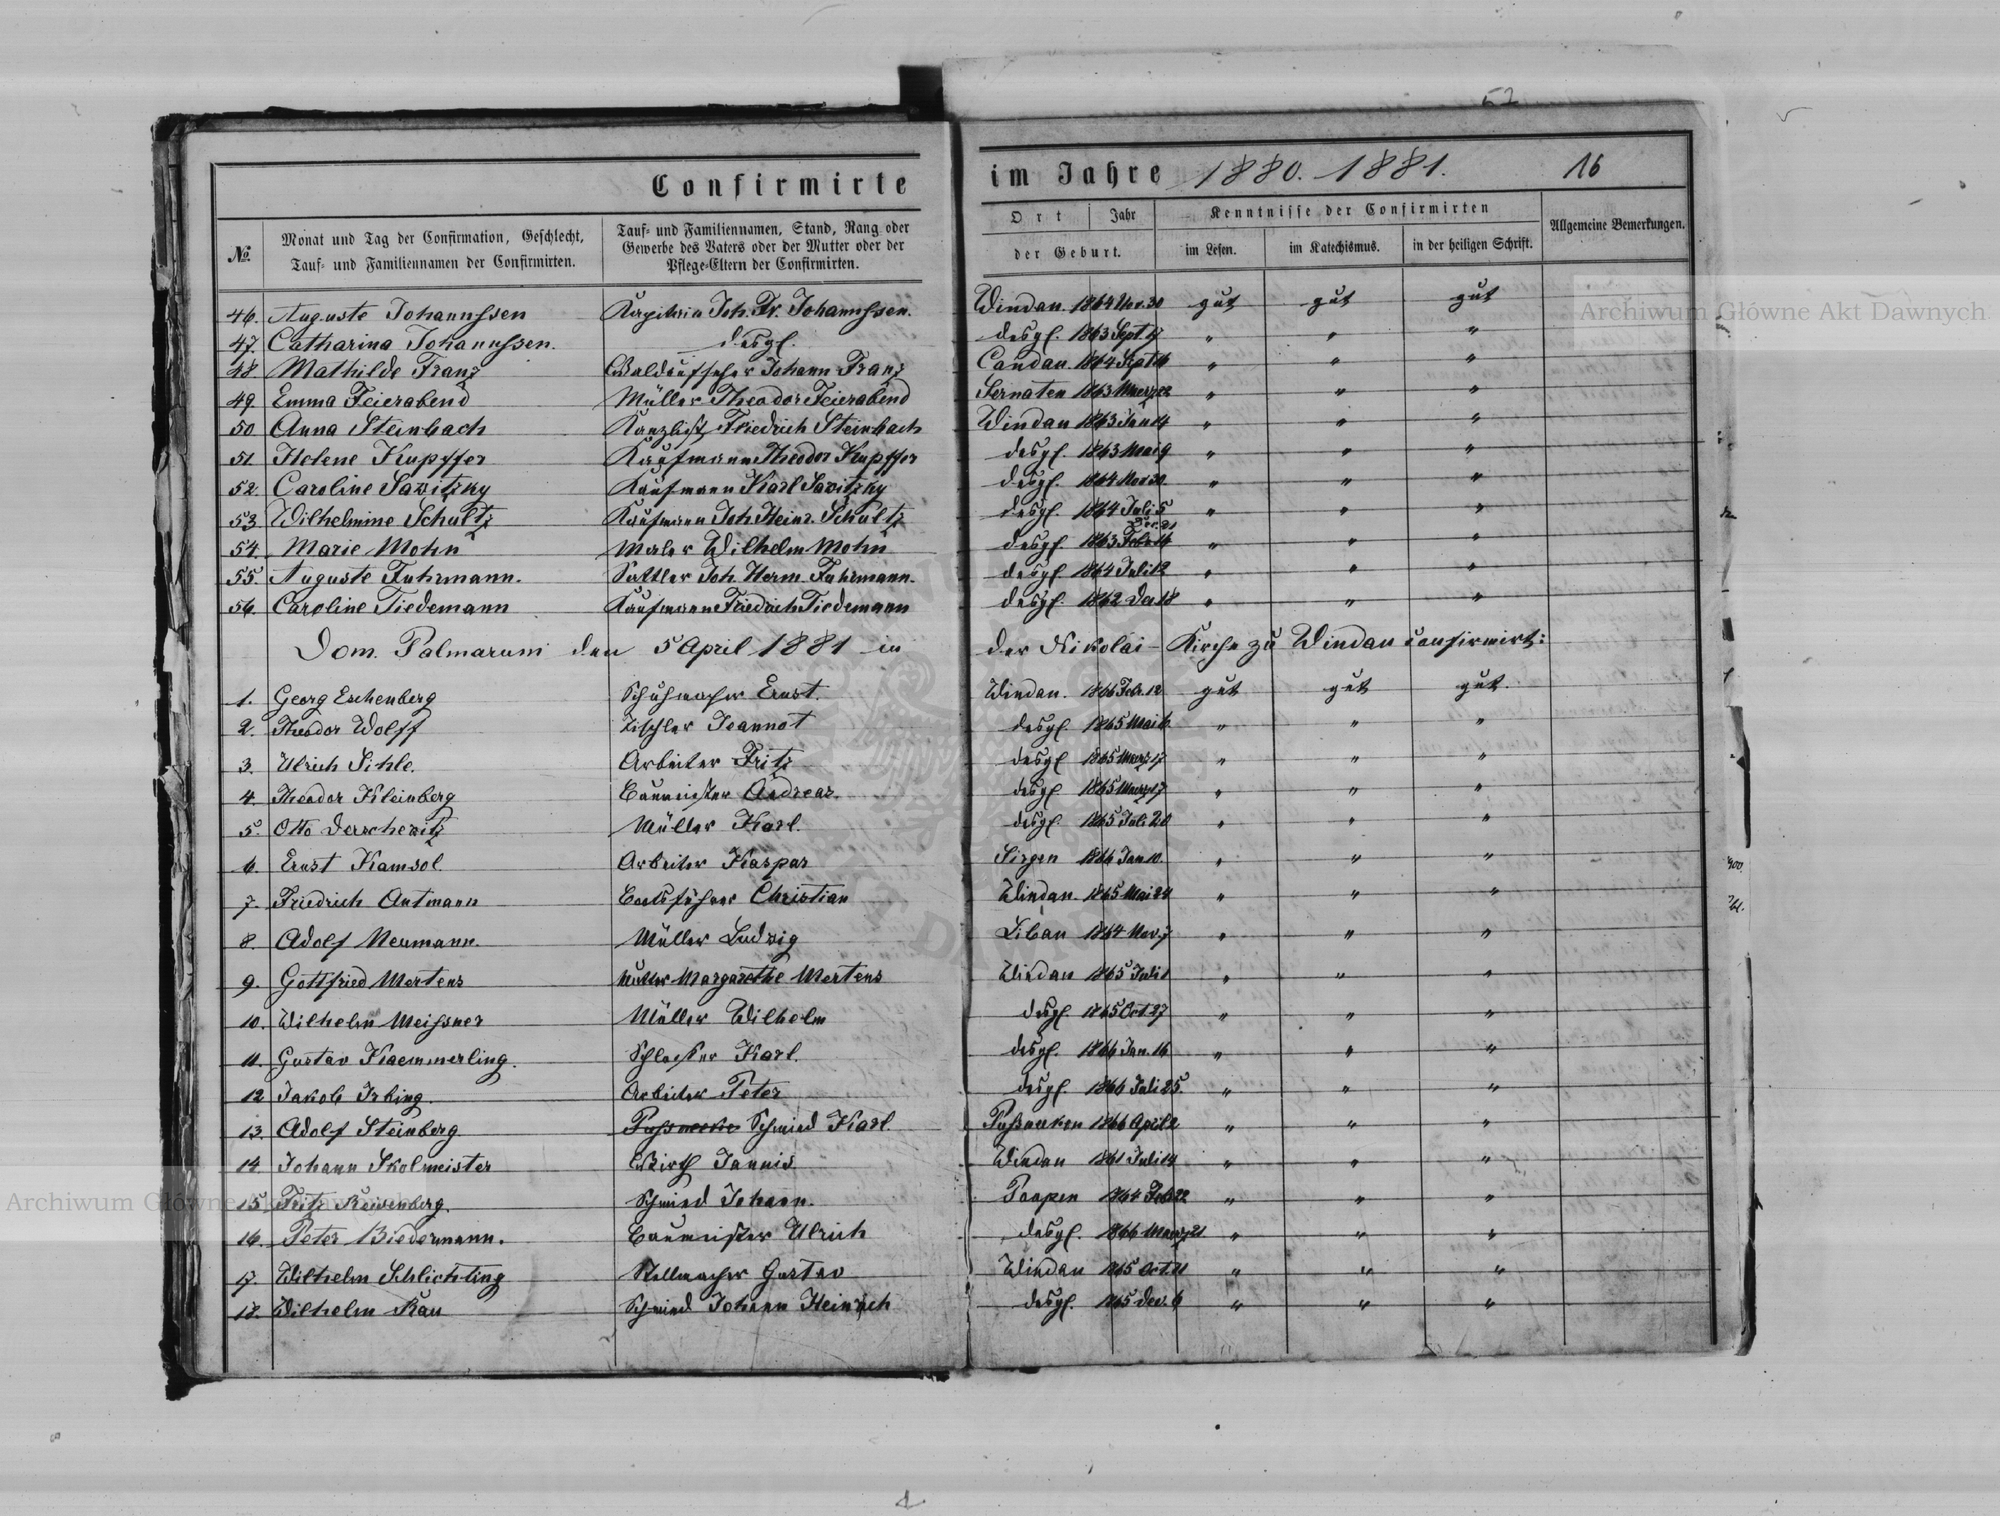 52
Confirmirte im Jahre 1880. 1881. 16
№. Monat und Tag der Confirmation, Geschlecht, Tauf- und Familiennamen der Confirmirten. Tauf- und Familiennamen, Stand, Rang oder Gewerbe des Vaters oder der Mutter oder der Pflege-Eltern der Confirmirten. Ort Jahr der Geburt. Kenntnisse der Confirmirten im Lesen. im Katechismus. in der heiligen Schrift. Allgemeine Bemerkungen.
46. Auguste Johannssen Kapitain Joh. Fr. Johannssen. Windau. 1864 Nov. 30 gut gut gut
47. Catharina Johannssen. desgl. desgl. 1863 Sept 17 " " "
48. Mathilde Franz Waldaufseher Johann Franz Candau. 1864 Sept 16 " " "
49. Emma Feierabend Müller Theodor Feierabend Sernaten 1863 Maerz 22 " " "
50. Anna Steinbach Kanzlist Friedrich Steinbach Windau 1863 Jan 14 " " "
51. Helene Kupffer Kaufmann Theodor Kupffer desgl. 1863 Mai 9 " " "
52. Caroline Sawitzky Kaufmann Karl Sawitzky desgl. 1864 Nov 30. " " "
53. Wilhelmine Schultz Kaufmann Joh. Heinr. Schultz desgl. 1864 Juli 5 " " "
54. Marie Mohn Maler Wilhelm Mohn desgl. 1863 Febr 16 " " "
55. Auguste Fuhrmann. Sattler Joh. Herm. Fuhrmann. desgl. 1864 Juli 12 " " "
56. Caroline Tiedemann Kaufmann Friedrich Tiedemann desgl. 1862 Dec 18 " " "
Dom. Palmarum den 5 April 1881 in der Nikolai-Kirche zu Windau confirmirt:
1. Georg Eschenberg Schuhmacher Ernst. Windau. 1866 Febr. 12 gut gut gut.
2. Theodor Wolff Tischler Jeannot desgl. 1865 Mai 6. " " "
3. Ulrich Sihle. Arbeiter Fritz desgl 1865 Maerz 17 " " "
4. Theodor Kleinberg Baumeister Andreas. desgl 1865 Maerz 17 " " "
5. Otto Derschewitz Müller Karl. desgl 1865 Juli 20 " " "
6. Ernst Kamsol. Arbeiter Kaspar Sirgen 1866 Jan 10. " " "
7. Friedrich Antmann Bootsführer Christian Windau. 1865 Mai 24 " " "
8. Adolf Neumann. Müller Ludwig Libau 1864 Nov. 7 " " "
9. Gottfried Mertens Mutter Margarethe Mertens Windau 1865 Juli 1 " " "
10. Wilhelm Meissner Müller Wilhelm desgl 1865 Oct. 27 " " "
11. Gustav Kaemmerling. Schlosser Karl. desgl. 1866 Jan. 16 " " "
12 Jakob Irbing. Arbeiter Peter desgl. 1866 Juli 25. " " "
13. Adolf Steinberg Schmied Karl Passneken 1866 April 2 " " "
14. Johann Skolmeister Wirth Jannis Windau 1861 Juli 14 " " "
15. Fritz Reisenberg. Schmied Johann. Poopen 1864 Febr 22 " " "
16. Peter Biedermann. Baumeister Ulrich desgl. 1866 Maerz 21 " " "
17. Wilhelm Schlichting Stellmacher Gustav Windau 1865 Oct. 21 " " "
18. Wilhelm Rau Schmied Johann Heinrich desgl. 1865 Dec. 6 " " "
Archiwum Główne Akt Dawnych
Archiwum Główne Akt Dawnych